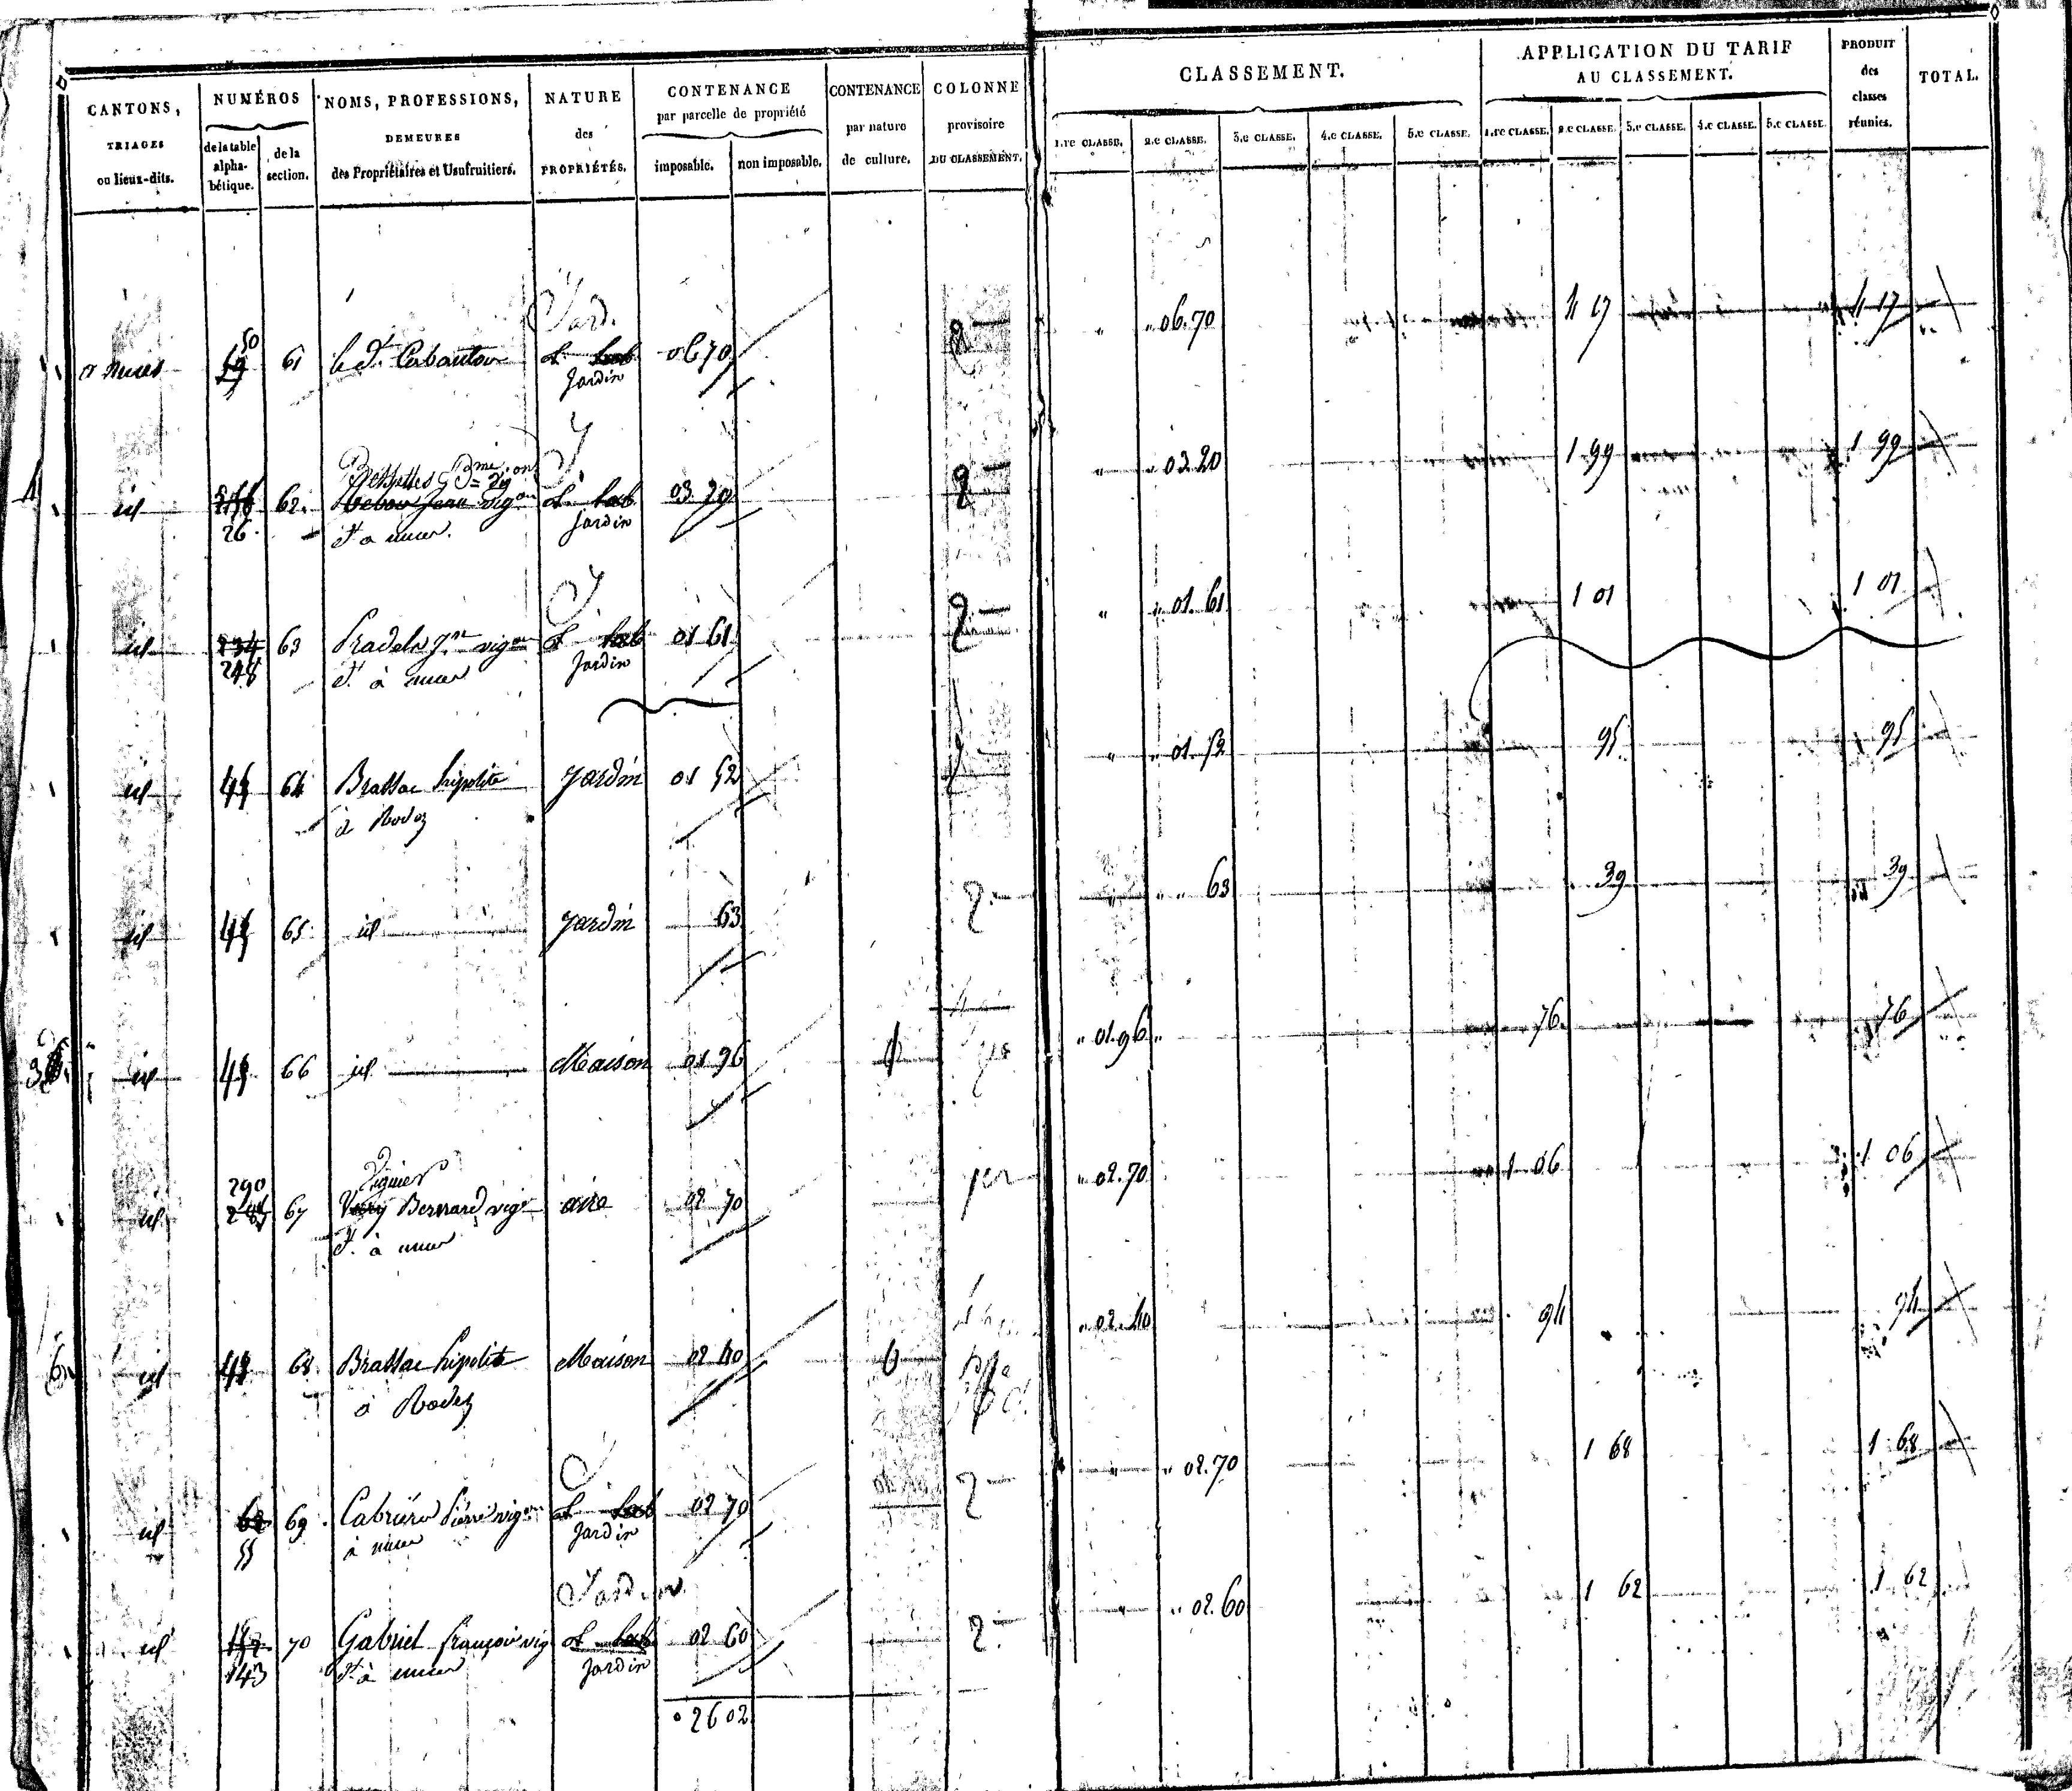 CANTONS, TRIAGES ou lieux-dits.
NUMÉROS de la table alpha-bétique. de la section.
NOMS, PROFESSIONS, DEMEURES des Propriétaires et Usufruitiers.
NATURE des PROPRIÉTÉS.
CONTENANCE par parcelle de propriété imposable. non imposable.
CONTENANCE par nature de culture.
COLONNE provisoire DU CLASSEMENT.
CLASSEMENT.
1.re CLASSE. 2.e CLASSE. 3.e CLASSE. 4.e CLASSE. 5.e CLASSE.
APPLICATION DU TARIF AU CLASSEMENT.
1.re CLASSE. 2.e CLASSE. 3.e CLASSE. 4.e CLASSE. 5.e CLASSE.
PRODUIT des classes réunies.
TOTAL.
Jard.
50
61 le d. 06 70 2 " " 06.70 4 17 4 17
Jardin
J.
id 62 03 20 2 " " 03.20 1 99 1 99
26 Jardin
J
id 234 63 vig on 01 61 2 " " 01.61 1 01 1 01
248 Jardin
id 64 Brassac hipolite Jardin 01 52 2 " " 01.52 95 95
à Rodez
id 65 id Jardin 63 2 " " " 63 39 39
id 66 id Maison 01 96 " 01.96 " 76 76
290 Viguier
id 67 Bernard vig on aire 02 70 1er " 02.70 1 06 1 06
id 68 Brassac hipolite Maison 02 40 6 " 02.40 94 94
à Rodez
J.
id 62 69 Pierre vig on 02 70 2 " " 02.70 1 68 1 68
55 Jardin
Jardin
id 70 Gabriel françois vig 02 60 2 " " 02.60 1 62 1 62
143 Jardin
2602